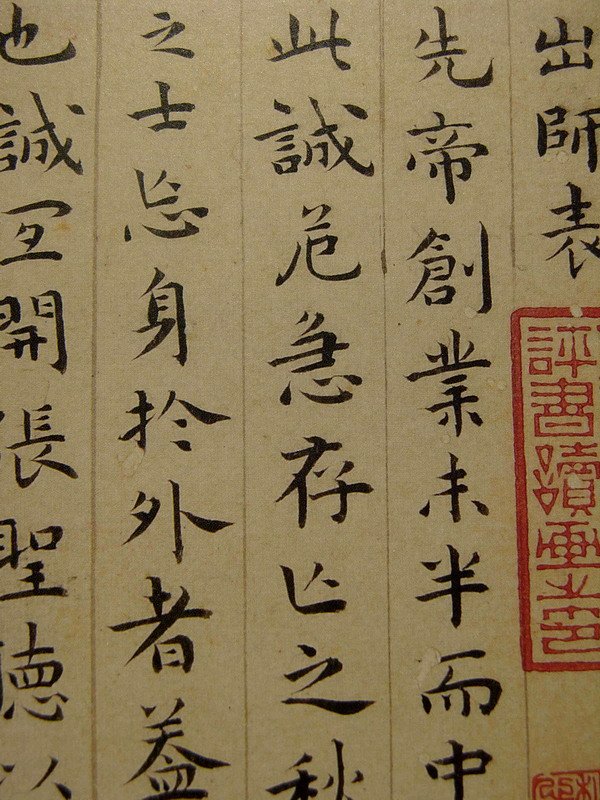 出師表
先帝創業未半而中
此誠危急存亡之秋
之士忘身扵外者蓋
也誠宜開張聖聴以
評書讀畫